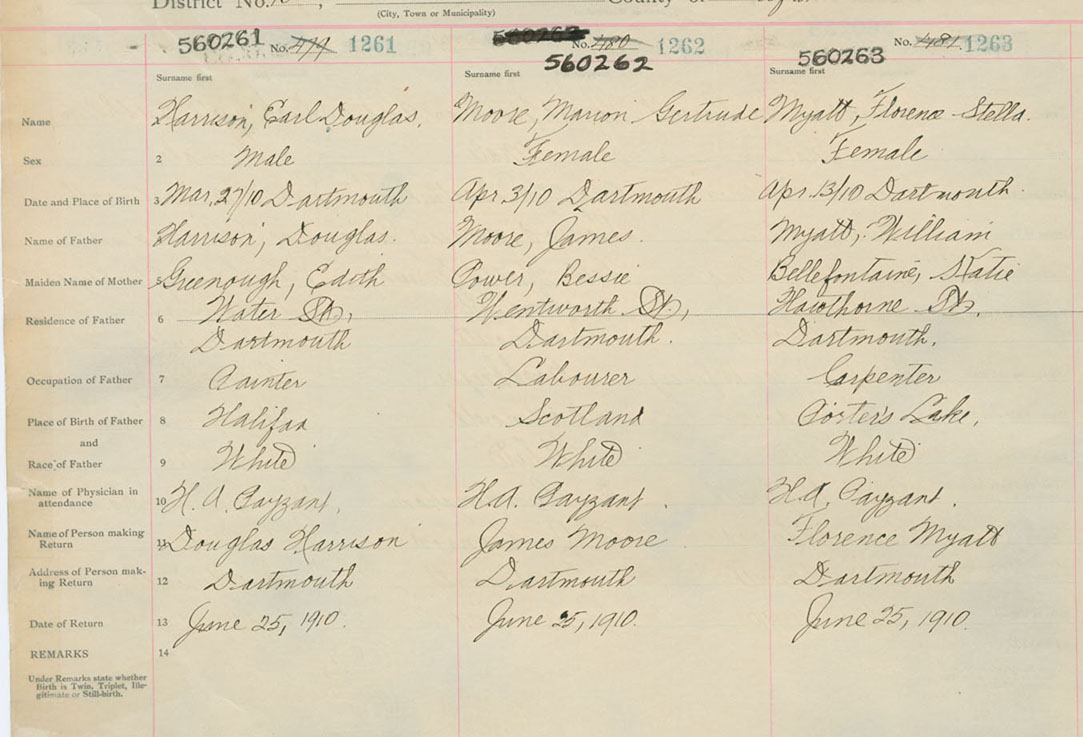 District No.
County of
(City, Town or Municipality)
560261 No. 479 1261
560262 No. 480 1262
560262
No. 481 1263
560263
Surname first Surname first Surname first
Name Harrison, Earl Douglas. Moore, Marion Gertrude Myatt, Florence Stella.
Sex 2 Male Female Female
Date and Place of Birth 3 Mar. 27/10 Dartmouth Apr. 3/10 Dartmouth Apr. 13/10 Dartmouth.
Name of Father Harrison, Douglas. Moore, James. Myatt, William
Maiden Name of Mother 5 Greenough, Edith Power, Bessie Bellefontaine, Katie
Residence of Father 6 Water St., Wentworth St., Hawthorne St.
Dartmouth Dartmouth. Dartmouth.
Occupation of Father 7 Painter Labourer Carpenter
Place of Birth of Father 8 Halifax Scotland Porter's Lake.
and
Race of Father 9 White White White
Name of Physician in
attendance 10 H. A. Payzant. H. A. Payzant. H. A. Payzant.
Name of Person making
Return 11 Douglas Harrison James Moore Florence Myatt
Address of Person mak-
ing Return 12 Dartmouth Dartmouth Dartmouth
Date of Return 13 June 25, 1910. June 25, 1910. June 25, 1910.
REMARKS 14
Under Remarks state whether
Birth is Twin, Triplet, Ille-
gitimate or Still-birth.